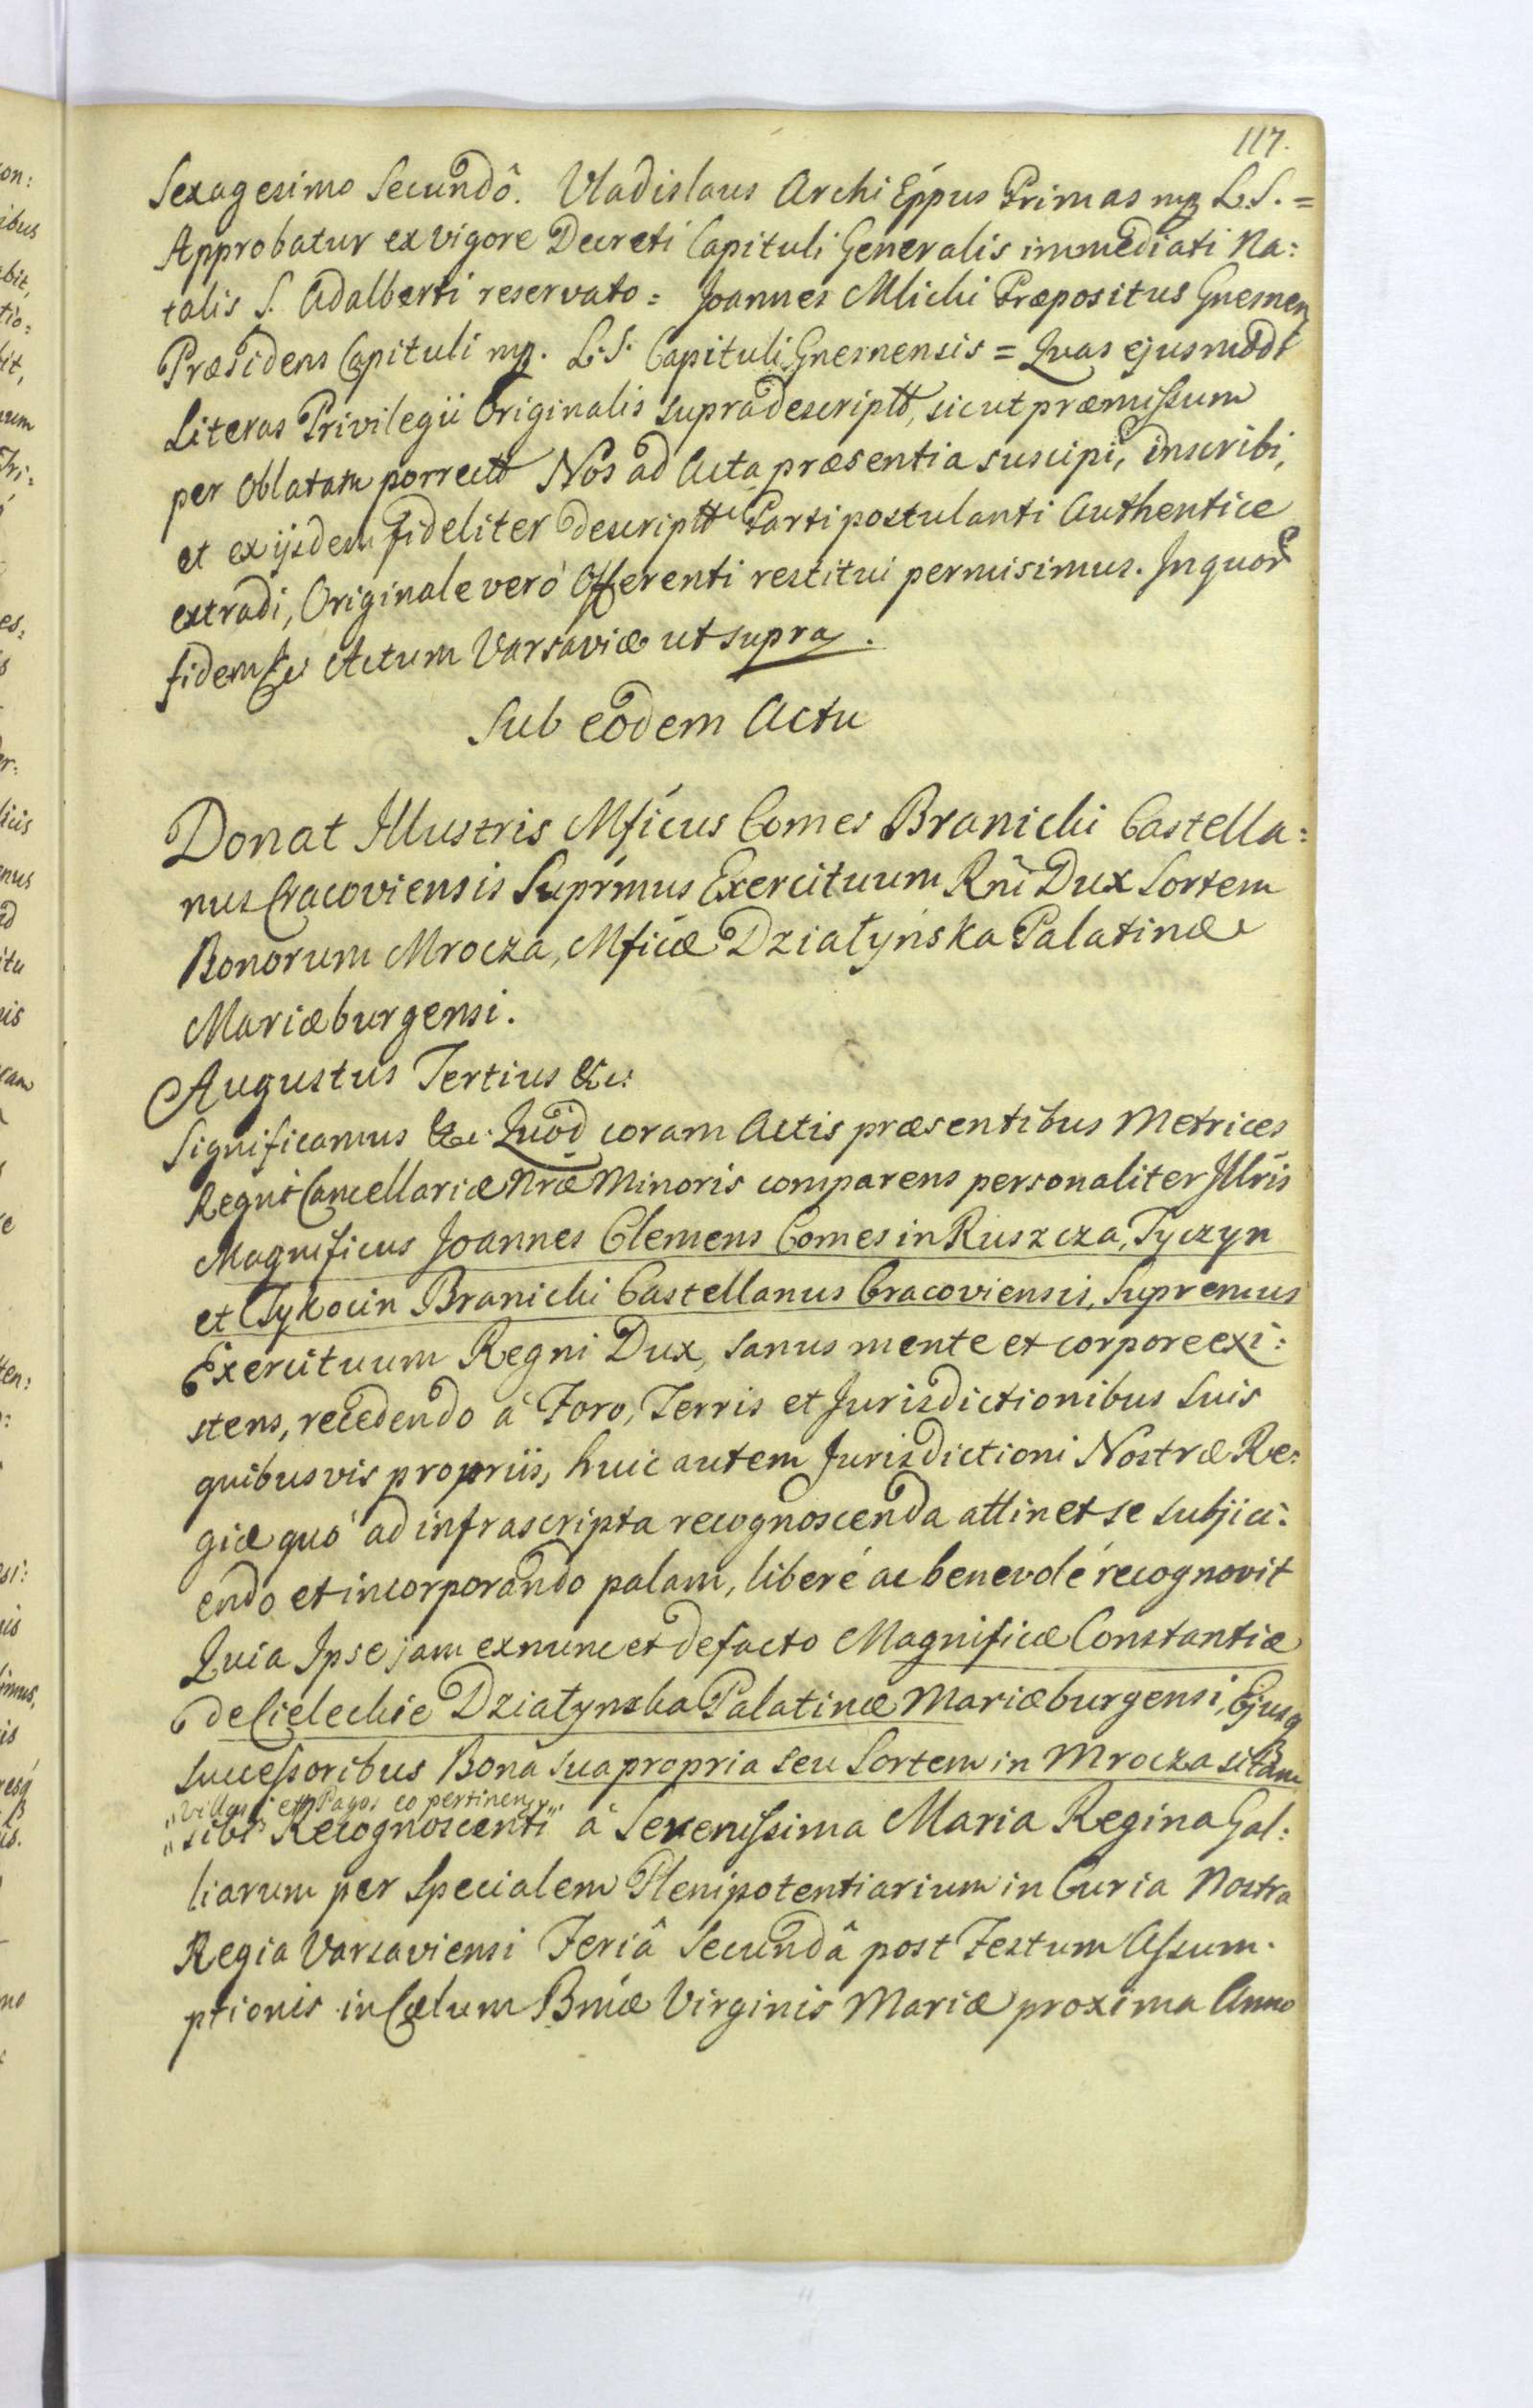 117.
Sexagesimo Secundô. Vladislaus Archi Eppus Primas mp L.S. =
Approbatur ex vigore Decreti Capituli Generalis immediati Na:
talis S. Adalberti reservato = Joannes Mlicki Præpositus Gnesnen
Præsidens Capituli mp. L.S. Capituli Gnesnensis = Quas ejusmodi
Literas Privilegii Originalis supradescriptt, sicut præmissum
per Oblatam porrectt Nos ad Acta præsentia suscipi, inscribi,
et ex ijsdem fideliter descriptt Parti postulanti Authentice
extradi, Originale verò Offerenti restitui permisimus. In quor
fidem &c Actum Varsaviæ ut supra.
Sub eodem Actu
Donat Illustris Mficus Comes Branicki Castella:
nus Cracoviensis Suprmus Exercituum Rni Dux Sortem
Bonorum Mrocza, Mficæ Działyńska Palatinæ
Mariæburgensi.
Augustus Tertius &c:
Significamus &c. Quòd coram Actis præsentibus Metrices
Regni Cancellariæ Nræ Minoris comparens personaliter Illris
Magnificus Joannes Clemens Comes in Ruszcza, Tyczyn
et Tykocin Branicki Castellanus Cracoviensis, Supremus
Exercituum Regni Dux, sanus mente et corpore exi:
stens, recedendo à Foro, Terris et Jurisdictionibus Suis
quibusvis propriis, huic autem Jurisdictioni Nostræ Re:
giæ quò ad infrascripta recognoscenda attinet se subjici:
endo et incorporando palam, liberè ac benevolè recognovit
Quia Ipse jam ex nunc et de facto Magnificæ Constantiæ
de Cieleckie Działynska Palatinæ Mariæburgensi, Ejusq
Successoribus Bona sua propria seu Sortem in Mrocza sitam
"Villas et Pagos eo pertinen"
"sibi Recognoscenti à Serenissima Maria Regina Gal:
liarum per Specialem Plenipotentiarium in Curia Nostra
Regia Varsaviensi Feriâ Secundâ post Festum Assum.
ptionis in Cælum Bmæ Virginis Mariæ proxima Anno